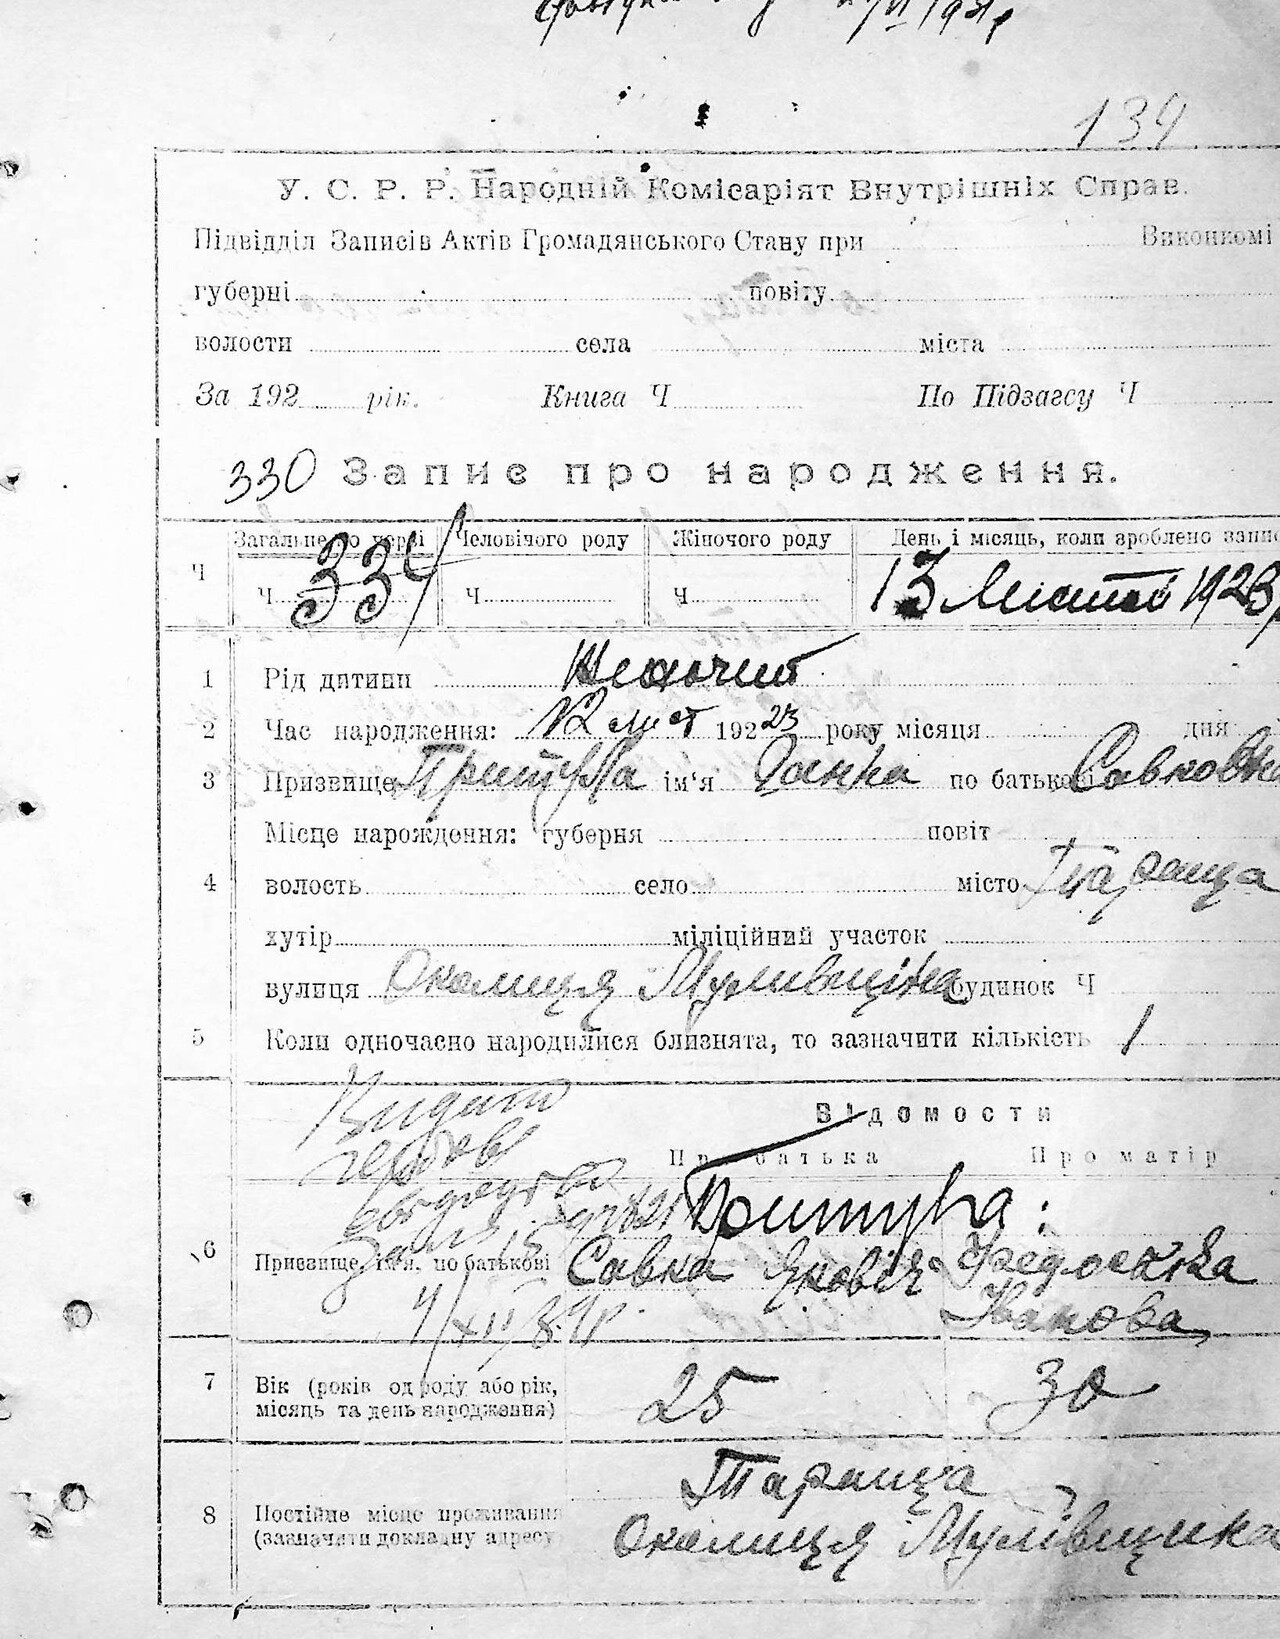 134
У. С. Р. Р. Народній Комісаріят Внутрішніх Справ.
Підвідділ Записів Актів Громадянського Стану при Виконкомі
губерні повіту
волости села міста
За 192 рік. Книга Ч По Підзагсу Ч
330 Запис про народження.
Загальне по черзі Человічого роду Жіночого роду День і місяць, коли зроблено запис
Ч Ч 334 Ч Ч 13 Листоп 1923
1 Рід дитини Жіночий
2 Час народження: 12 лист 192 23 року місяця дня
3 Призвище Притула ім'я Ганна по батькові Савковна
Місце народження: губерня повіт
4 волость село місто Тараща
хутір міліційний участок
вулиця Околиця Мулівщина будинок Ч
5 Коли одночасно народилися близнята, то зазначити кількість 1
Видано
Відомости
Про батька Про матір
Притула:
6 Призвище, ім'я, по батькові Савка Якович Федоська
Іванова
7 Вік (років од роду або рік, місяць та день народження) 25 30
Тараща
8 Постійне місце проживання
(зазначати докладну адресу) Околиця Мулівщина